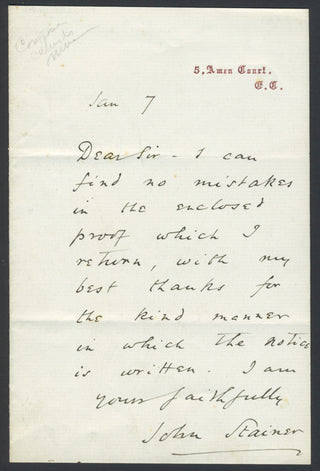 5, Amen Court.
E.C.
Jan 7
Dear Sir - I can
find no mistakes
in the enclosed
proof which I
return, with my
best thanks for
the kind manner
in which the notice
is written. I am
yours faithfully
John Stainer